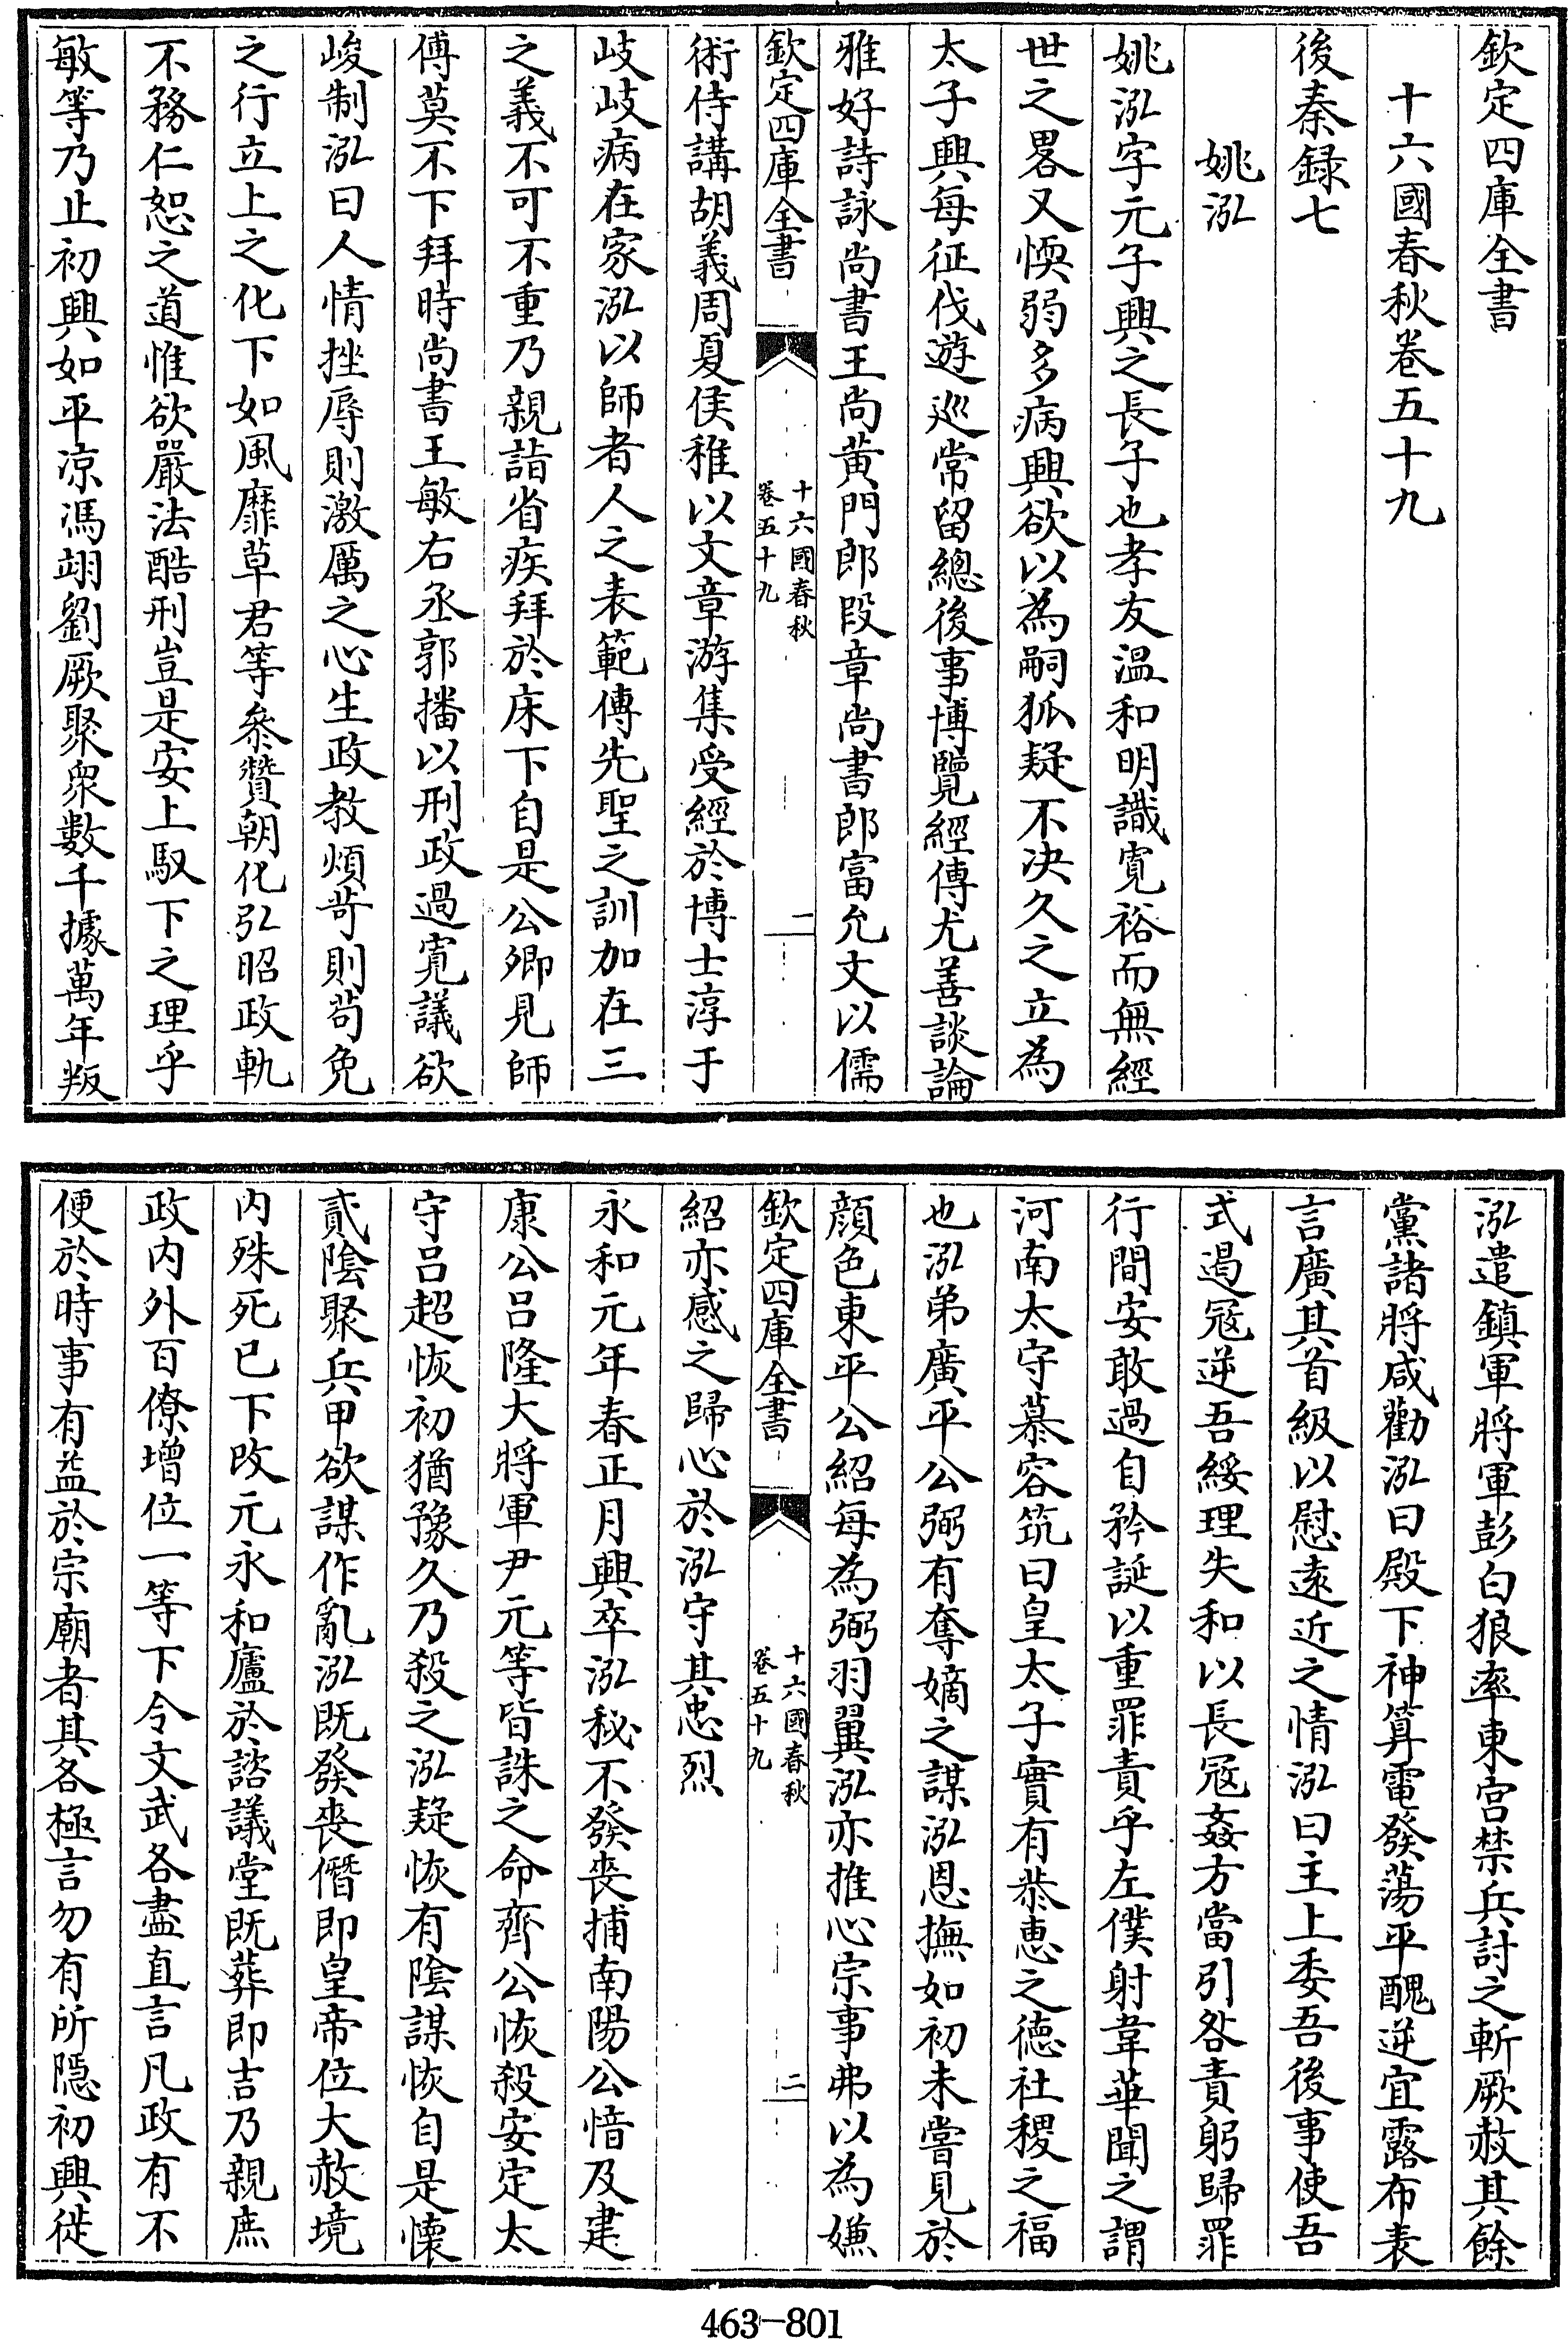 欽定四庫全書
十六國春秋卷五十九
後秦録七
姚泓
姚泓字元子興之長子也孝友温和明識寛裕而無經
世之畧又愞弱多病興欲以為嗣狐疑不决久之立為
太子興每征伐遊巡常留總後事博覽經傳尤善談論
雅好詩詠尚書王尚黄門郎段章尚書郎富允文以儒
欽定四庫全書
十六國春秋
卷五十九
一
術侍講胡義周夏侯稚以文章游集受經於博士淳于
岐岐病在家泓以師者人之表範傳先聖之訓加在三
之義不可不重乃親詣省疾拜於床下自是公卿見師
傅莫不下拜時尚書王敏右丞郭播以刑政過寛議欲
峻制泓曰人情挫辱則激厲之心生政教煩苛則苟免
之行立上之化下如風靡草君等參贊朝化弘昭政軌
不務仁恕之道惟欲嚴法酷刑豈是安上馭下之理乎
敏等乃止初興如平凉馮翊劉厥聚衆數千據萬年叛
泓遣鎮軍將軍彭白狼率東宫禁兵討之斬厥赦其餘
黨諸將咸勸泓曰殿下神算電發蕩平醜逆宜露布表
言廣其首級以慰遠近之情泓曰主上委吾後事使吾
式遏宼逆吾綏理失和以長宼姦方當引咎責躬歸罪
行間安敢過自矜誕以重罪責乎左僕射韋華聞之謂
河南太守慕容筑曰皇太子實有恭惠之德社稷之福
也泓弟廣平公弼有奪嫡之謀泓恩撫如初未嘗見於
顔色東平公紹每為弼羽翼泓亦推心宗事弗以為嫌
欽定四庫全書
十六國春秋
卷五十九
二
紹亦感之歸心於泓守其忠烈
永和元年春正月興卒泓秘不發喪捕南陽公愔及建
康公吕隆大將軍尹元等皆誅之命齊公恢殺安定太
守吕超恢初猶豫久乃殺之泓疑恢有陰謀恢自是懷
貳陰聚兵甲欲謀作亂泓既發喪僭即皇帝位大赦境
内殊死已下改元永和廬於諮議堂既葬即吉乃親庶
政内外百僚增位一等下令文武各盡直言凡政有不
便於時事有益於宗廟者其各極言勿有所隱初興徙
463-801